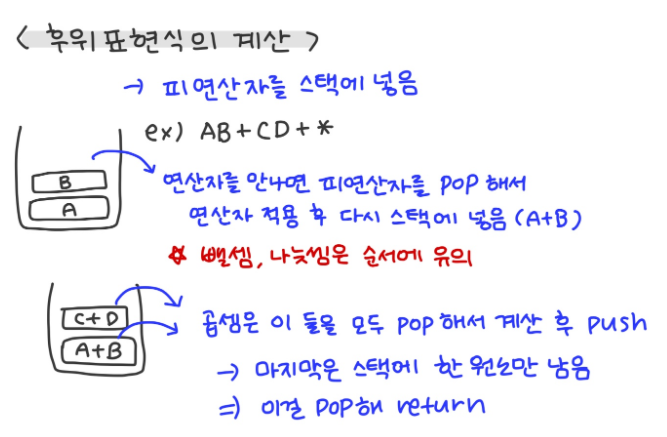 < 후위표현식의 계산 >
→ 피연산자를 스택에 넣음
ex) AB+CD+*
B
A
연산자를 만나면 피연산자를 POP 해서
연산자 적용 후 다시 스택에 넣음 (A+B)
☆ 뺄셈, 나눗셈은 순서에 유의
C+D
A+B
곱셈은 이 둘을 모두 POP 해서 계산 후 push
→ 마지막은 스택에 한 원소만 남음
⇒ 이걸 POP해 return